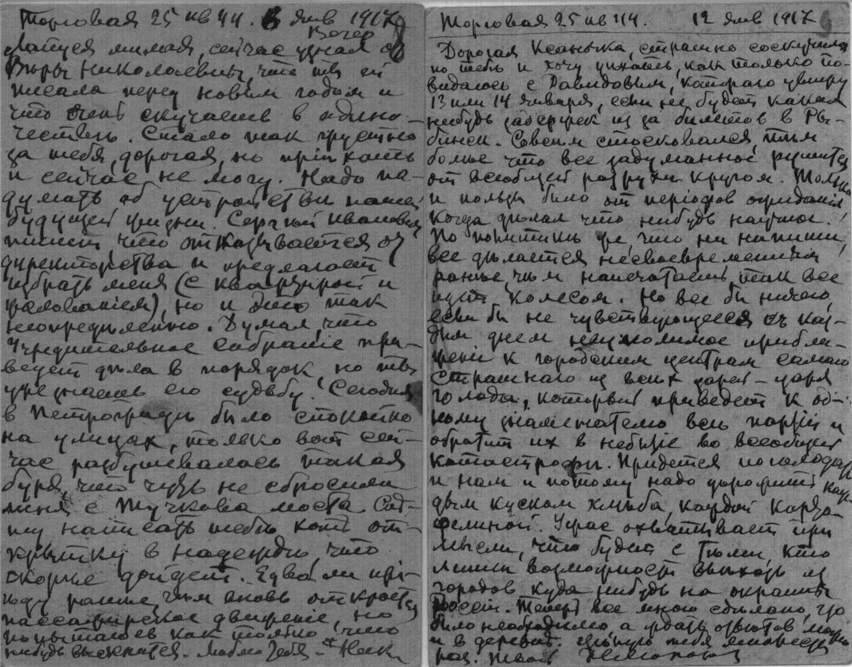 Торговая 25 кв 44. 6 янв 1917
вечер
милая, сейчас узнал от
Веры Николаевны, что ты ей
писала перед новым годом и
что очень скучаешь в одино-
честве. Стало так грустно
за тебя, дорогая, но приехать
и сейчас не могу. Надо по-
думать об устройстве нашей
будущей жизни. Сергей Иванович
пишет что отказывается от
директорства и предлагает
избрать меня (с квартирой и
жалованием), но и дело так
неопределенно. Думал, что
Учредительное собрание при-
ведет дела в порядок, но ты
уже знаешь его судьбу. Сегодня
в Петрограде было спокойно
на улицах, только вот сей-
час разбушевалась такая
буря, что чуть не сбросила
меня с Тучкова моста.
написать тебе хоть от-
крытку в надежде, что
скорее дойдет. Едва ли при-
еду раньше, чем вновь откроется
пассажирское движение, но
попытаюсь как только что
нибудь выяснится. Люблю тебя.
Торговая 25 кв 44. 12 янв 1917
Дорогая Ксенька, страшно соскучился
по тебе и хочу уехать, как только по-
видаюсь с Давидовым, которого увижу
13 или 14 января, если не будет каких
нибудь задержек из за билетов в Ры-
бинск. Совсем стосковался, тем
более что все задуманное рушится
от всеобщей разрухи кругом. Только
и пользы было от периодов ожидания
когда делал что нибудь научное.
По политике же что ни напиши,
все делается несвоевременным
раньше, чем напечатаешь, так все
идет колесом. Но все бы ничего,
если бы не чувствующееся с каж-
дым днем неумолимое прибли-
жение к городским центрам самого
страшнаго из всех царей — царя
голода, который приведет к од-
ному знаменателю все партии и
обратит их в небытие во всеобщей
катастрофе. Придется поголодать
и нам и потому надо дорожить каж-
дым куском хлеба, каждой карто-
фелиной. Ужас охватывает при
мысли, что будет с теми, кто
лишен возможности выехать из
городов куда нибудь на окраины
России. Теперь все мною сделано, что
было необходимо, а ждать ответов можно
и в деревне. Целую тебя
раз. Твой